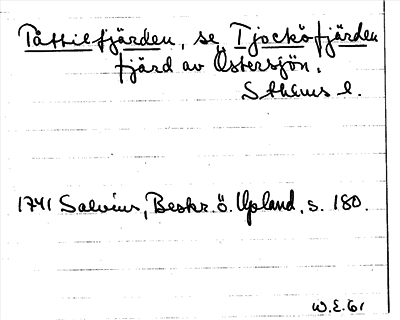 Tåttilefjärden, se Tjocköfjärden
fjärd av Östersjön.
Sthlms l.
1741 Salvius, Beskr. ö. Upland, s. 180.
W.E. 61